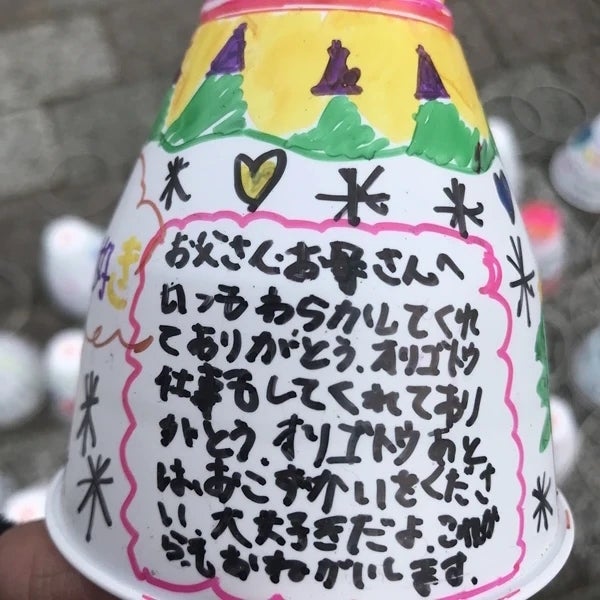 お父さん・お母さんへ
いつもわらかしてくれ
てありがとう、オリゴトウ
仕事もしてくれてあり
がとう、オリゴトウあと
は、おこずかいをくださ
い、大大好きだよ、これか
らもおねがいします。
好き